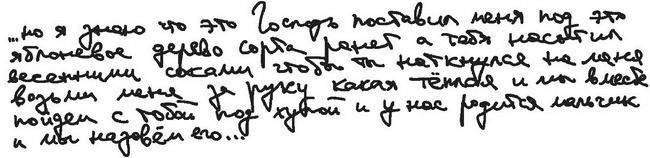 ...но я знаю что это Господь поставил меня под это
яблоневое дерево сорта ранет а тебя насытил
весенними соками чтобы ты наткнулся на меня
возьми меня за руку какая тёплая и мы вместе
пойдем с тобой под хупой и у нас родится мальчик
и мы назовём его...